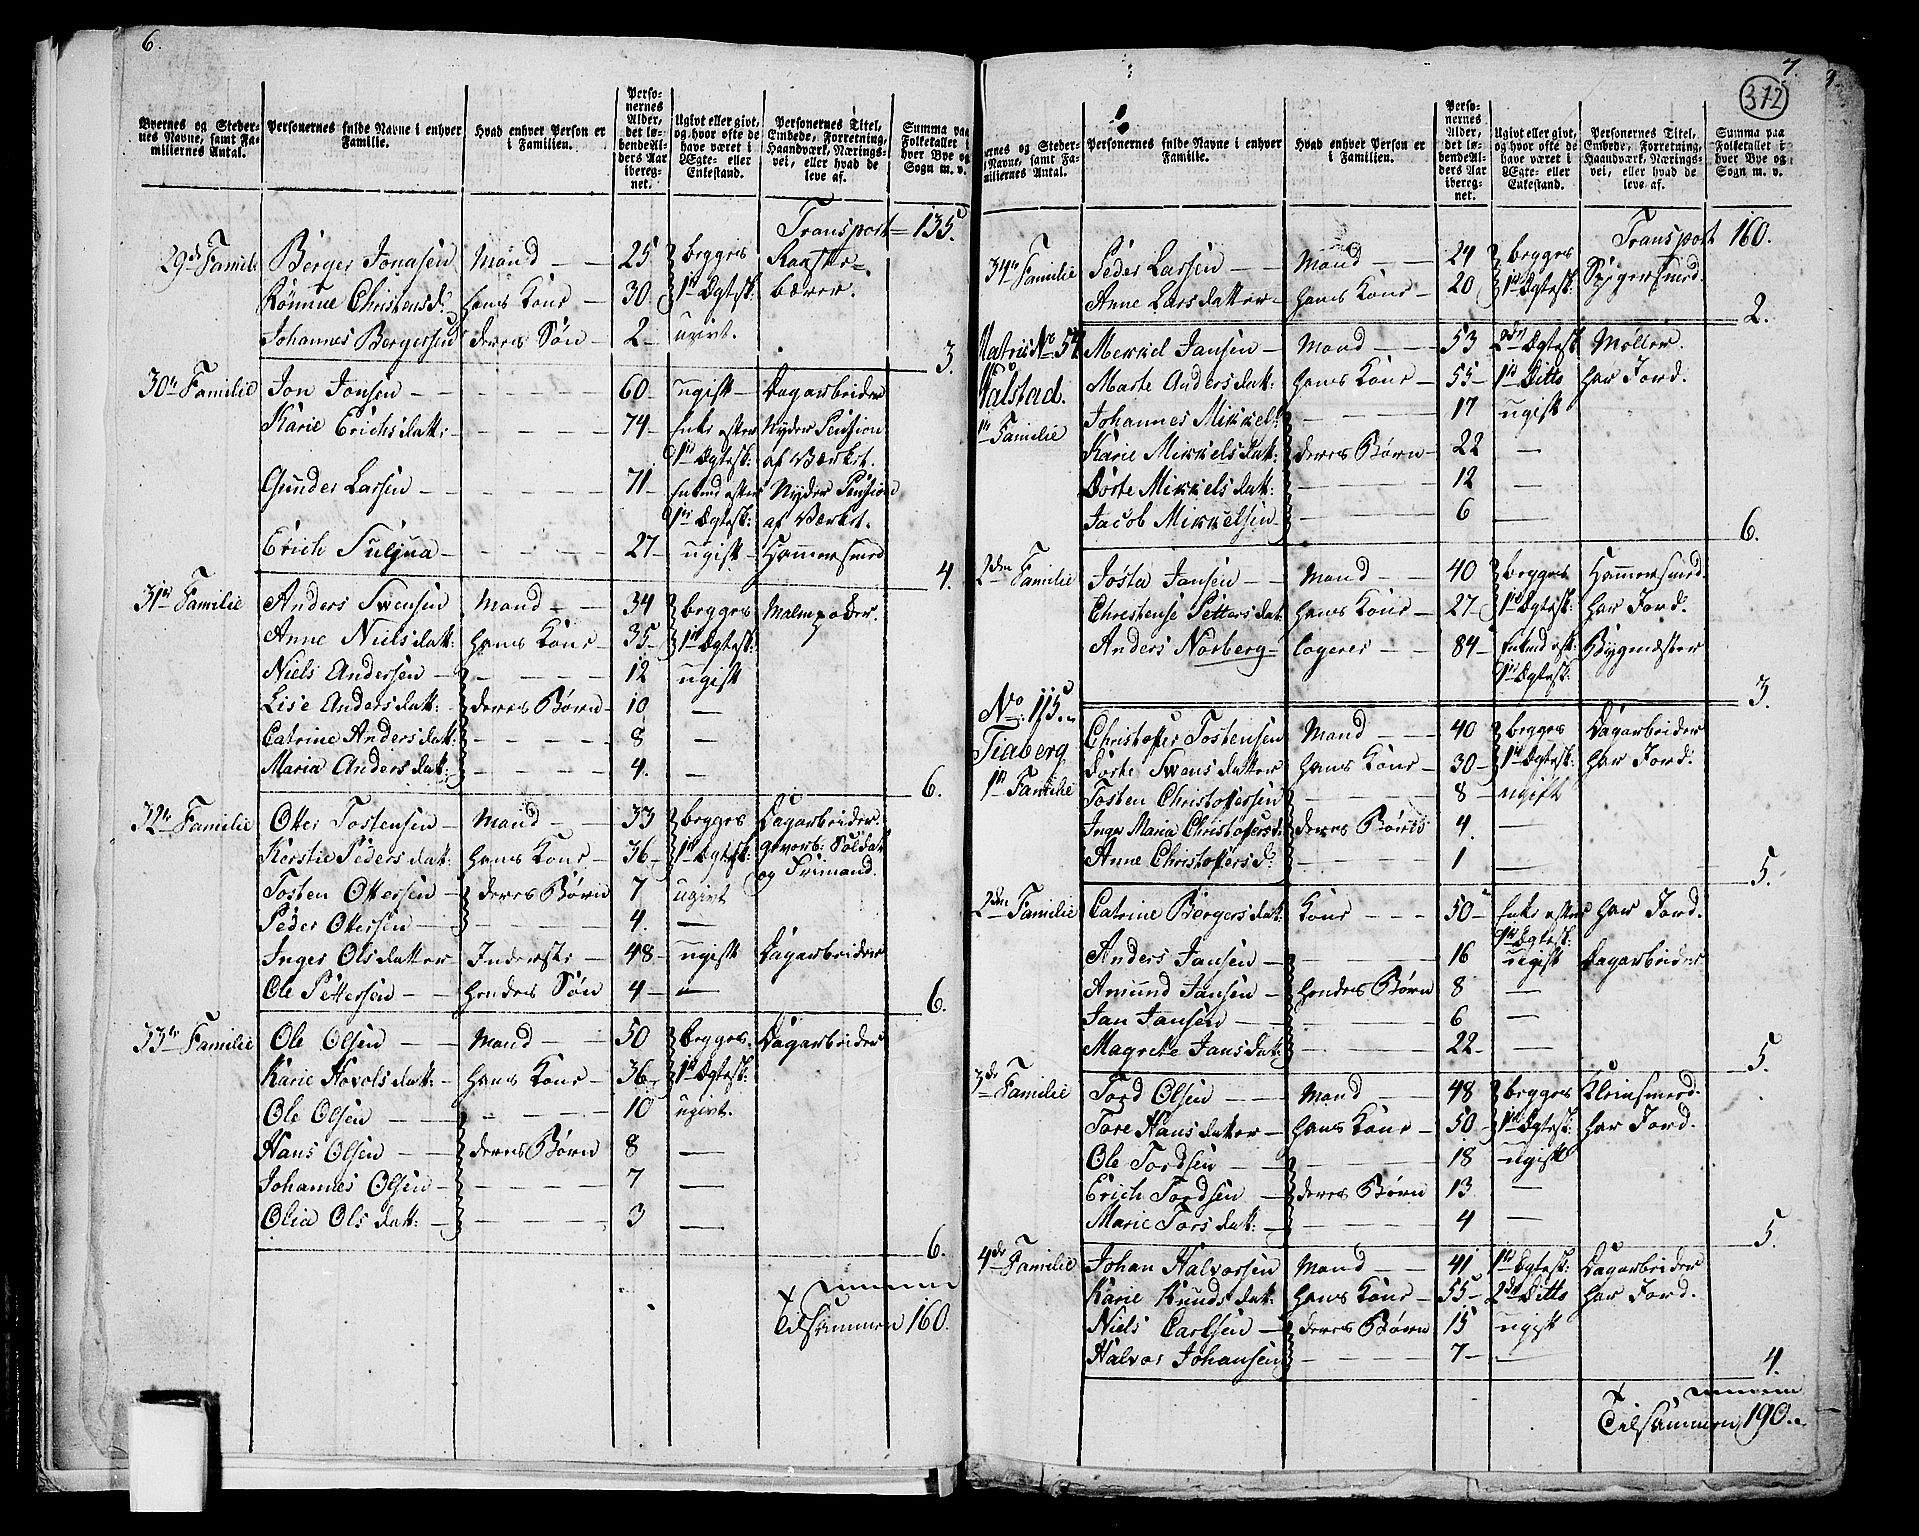 6.
Byernes og Steder-
nes Navne, samt Fa-
miliernes Antal.
Personernes fulde Navne i enhver
Familie.
Hvad enhver Person er
i Familien.
Perso-
nernes
Alder,
det lø-
bende Al-
ders Aar
ibereg-
net.
Ugivt eller givt,
og hvor ofte de
have været i
Ægte- eller
Enkestand.
Personernes Titel,
Embede, Forretning,
Haandværk, Nærings-
vei, eller hvad de
leve af.
Summa paa
Folketallet i
hver Bye og
Sogn m. v.
Transport = 135.
29de Famili Berger Jonasen Mand 25 begges
Christensd. hans Kone 30 1ste Ægtesk: bærer.
Johannes Bergersen deres Søn 2 ugivt.
3.
30te Familie Jon Jonsen 60 ugift Dagarbeider
Karie Erichsdatt: 74 Enke efter Nyder Pension
1ste Ægtesk: af Værket.
Gunder Larsen 71 Enkmd efter Nyder Pension
1ste Ægtesk: af Værket.
Erich Suljua 27 ugift Hammersmed
4.
31te Familie Anders Swensen Mand 34 begges
Anne Nielsdatt: hans Kone 35 1ste Ægtesk:
Niels Andersen 12 ugift
Lise Andersdatt: deres Børn 10 —
Catrine Andersdatt: 8 —
Maria Andersdatt: 4. —
6.
32te Familie Otter Tostensen Mand 33 begges Dagarbeider
Kerstie Pedersdatt: hans Kone 36 1ste Ægtesk: gevorb: Soldat
og Frimand.
Tosten Ottersen deres Børn 7 ugivt
Peder Ottersen 4. —
Inger Olsdatter Inderste 48 ugift Dagarbeider
Ole Pettersen hendes Søn 4 —
6.
33te Familie Ole Olsen Mand 50 begges Dagarbeider
Karie Hovolsdatt: hans Kone 36 1ste Ægtesk:
Ole Olsen 10 ugivt.
Hans Olsen deres Børn 8 —
Johannes Olsen 7 —
Olia Olsdatt: 3 —
6.
Tilsammen 160.
7.
372
9.
ernes og Steder-
s Navne, samt Fa-
miliernes Antal.
Personernes fulde Navne i enhver
Familie.
Hvad enhver Person er
i Familien.
Perso-
nernes
Alder,
det lø-
bende Al-
ders Aar
ibereg-
net.
Ugivt eller givt,
og hvor ofte de
have været i
Ægte- eller
Enkestand.
Personernes Titel,
Embede, Forretning,
Haandværk, Nærings-
vei, eller hvad de
leve af.
Summa paa
Folketallet i
hver Bye og
Sogn m. v.
Transport 160.
34te Familie Peder Larsen Mand 24 begges Spigersmed.
Anne Larsdatter hans Kone 20 1ste Ægtesk:
2.
Matric No 54 Mekkel Jansen Mand 53 2det Ægtesk Møller
alstad. Marte Andersdatt: hans Kone 55 1ste Ditto har Jord.
1te Familie Johannes Mikkels: 17 ugift
Karie Mikkelsdatt: deres Børn 22 —
Dorte Mikkelsdatt: 12 —
Jacob Mikkelsen 6 —
6.
2den Familie Josta Jansen Mand 40 begges Hammersmed.
Christense Pettersdat hans Kone 27 1ste Ægtesk: har Jord.
Anders Norberg logeres 84 Enkmd eft: Bygmæster
1ste Ægtesk:
3.
No. 115.
Tiaberg Christoffer Tostensen Mand 40 begges Dagarbeider
Dorte Swensdatter hans Kone 30 1ste Ægtesk: har Jord.
1te Familie Tosten Christoffersen 8 ugift
Inger Maria Christoffersd: deres Børn 4. —
Anne Christoffersd: 1 —
5.
2den Familie Catrine Bergersdatt: Kone 50 Enke efter har Jord.
1ste Ægtesk:
Anders Jansen 16 ugift Dagarbeider
Amund Jansen hendes Børn 8 —
Jan Jansen 6 —
Magrete Jansdatt: 22 —
5.
3de Familie Tord Olsen Mand 48 begges Kleinsmed.
Tore Hansdatter hans Kone 50 1ste Ægtesk: har Jord.
Ole Tordsen 18 ugift
Erich Tordsen deres Børn 13 —
Marie Torsdatt: 4 —
5.
4de Familie Johan Halvorsen Mand 41 1ste Ægtesk: Dagarbeider
Karie Knudsdatt: hans Kone 55 2det Ditto har Jord.
Niels Carlsen deres Børn 15 ugift
Halvor Johansen 7 —
4.
Tilsammen 190.